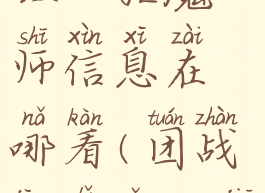 shī xìn xī zài
师信息在
nǎ kàn tuán zhàn
哪看(团战